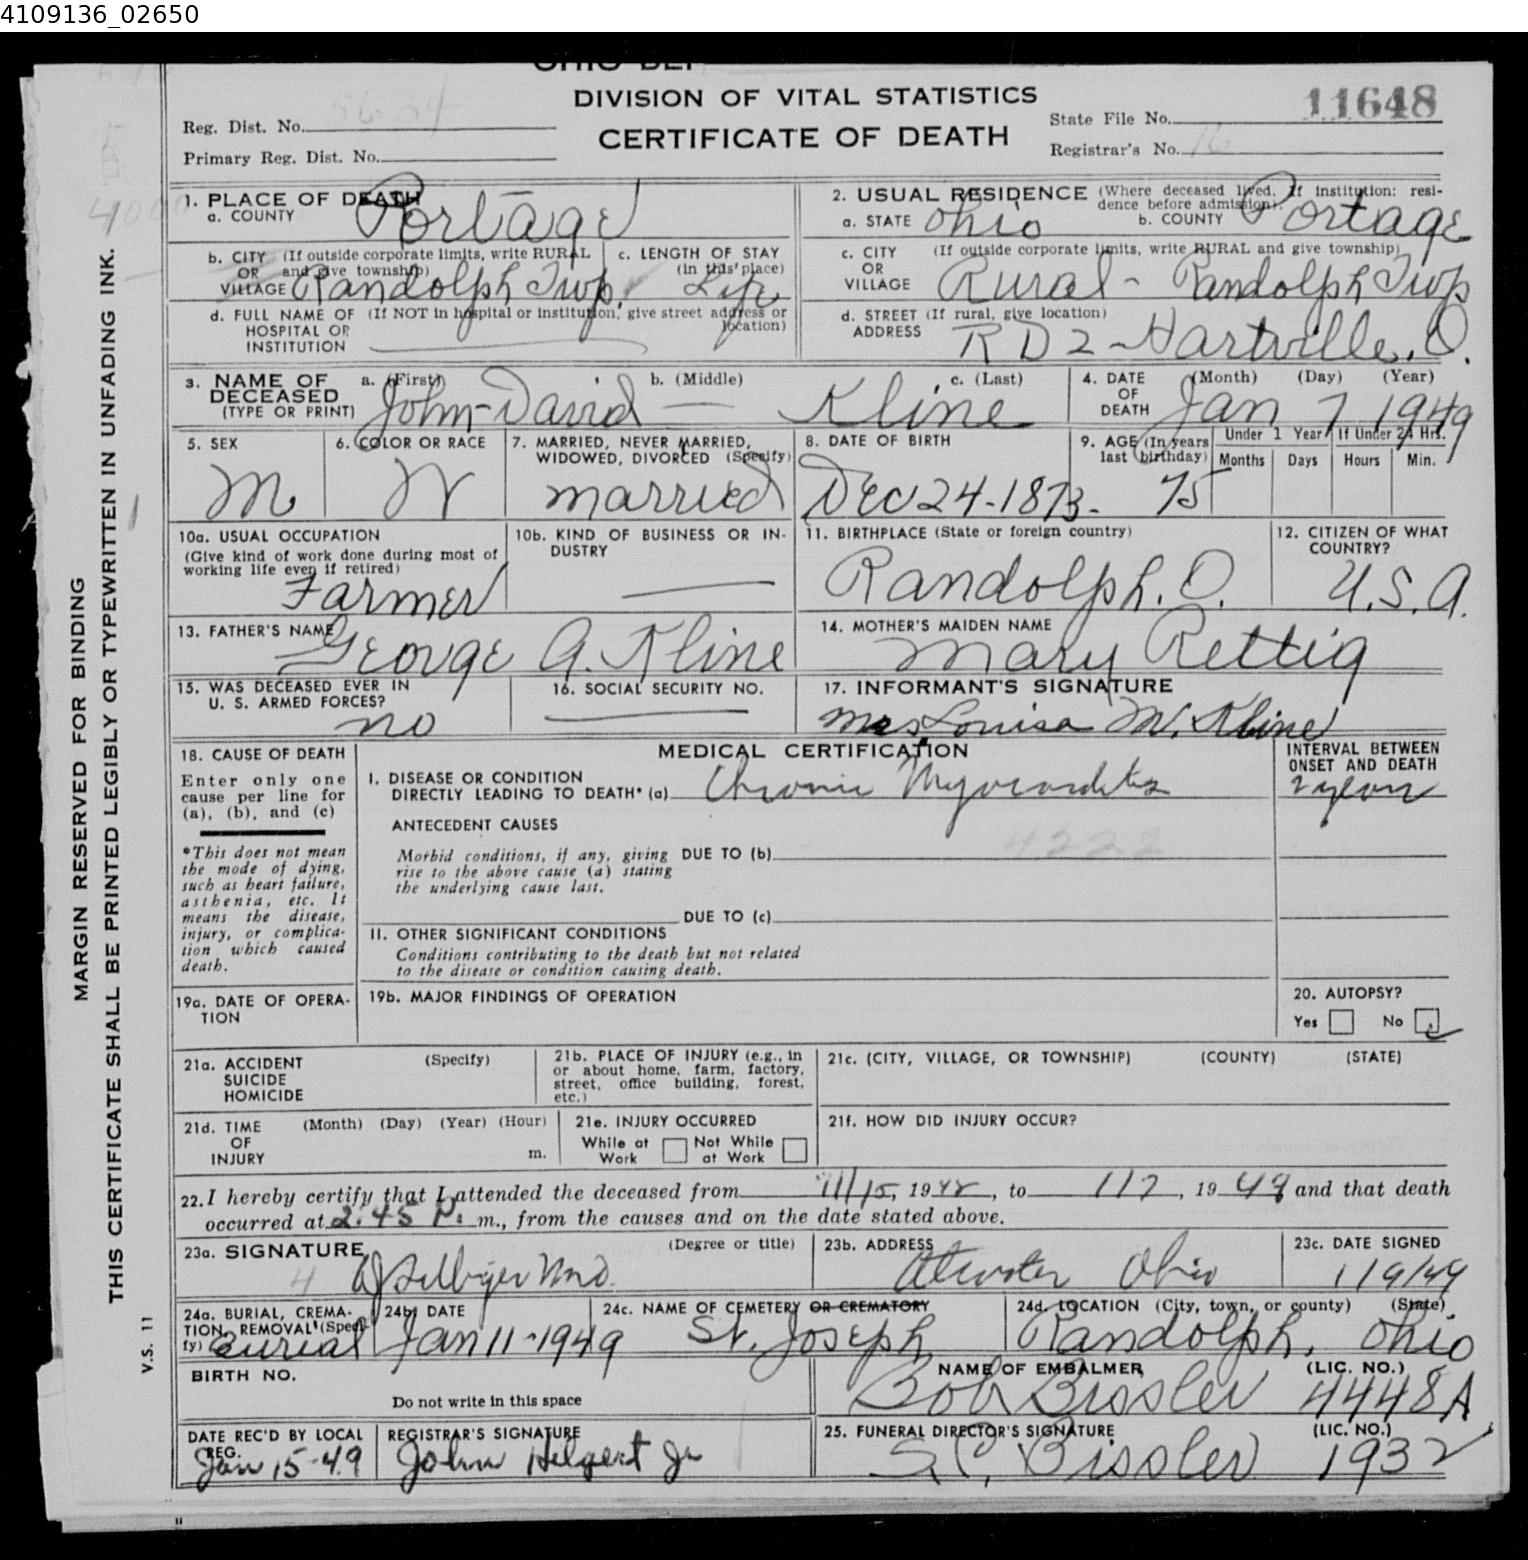 4109136_02650
DIVISION OF VITAL STATISTICS
CERTIFICATE OF DEATH
Reg. Dist. No. 5634
Primary Reg. Dist. No.
State File No. 11648
Registrar's No. 16
1. PLACE OF DEATH
a. COUNTY Portage
2. USUAL RESIDENCE (Where deceased lived. If institution: residence before admission).
a. STATE Ohio b. COUNTY Portage
b. CITY (If outside corporate limits, write RURAL and give township) OR VILLAGE Randolph Twp.
c. LENGTH OF STAY (in this place) Life
c. CITY (If outside corporate limits, write RURAL and give township) OR VILLAGE Rural - Randolph Twp
d. FULL NAME OF (If NOT in hospital or institution, give street address or location) HOSPITAL OR INSTITUTION
d. STREET (If rural, give location) ADDRESS R D 2 - Hartville, O.
3. NAME OF DECEASED (TYPE OR PRINT) a. (First) John-David b. (Middle) — c. (Last) Kline
4. DATE OF DEATH (Month) (Day) (Year) Jan 7 1949
5. SEX M
6. COLOR OR RACE W
7. MARRIED, NEVER MARRIED, WIDOWED, DIVORCED (Specify) married
8. DATE OF BIRTH Dec 24-1873-
9. AGE (In years last birthday) 75
Under 1 Year Months Days
If Under 24 Hrs. Hours Min.
10a. USUAL OCCUPATION (Give kind of work done during most of working life even if retired) Farmer
10b. KIND OF BUSINESS OR INDUSTRY —
11. BIRTHPLACE (State or foreign country) Randolph, O.
12. CITIZEN OF WHAT COUNTRY? U.S.A.
13. FATHER'S NAME George A. Kline
14. MOTHER'S MAIDEN NAME Mary Rettig
15. WAS DECEASED EVER IN U. S. ARMED FORCES? no
16. SOCIAL SECURITY NO. —
17. INFORMANT'S SIGNATURE Mrs Louisa M. Kline
18. CAUSE OF DEATH
Enter only one cause per line for (a), (b), and (c)
*This does not mean the mode of dying, such as heart failure, asthenia, etc. It means the disease, injury, or complication which caused death.
MEDICAL CERTIFICATION
INTERVAL BETWEEN ONSET AND DEATH
I. DISEASE OR CONDITION DIRECTLY LEADING TO DEATH* (a) Chronic Myocarditis 2 years
ANTECEDENT CAUSES
Morbid conditions, if any, giving rise to the above cause (a) stating the underlying cause last.
DUE TO (b) 4222
DUE TO (c)
II. OTHER SIGNIFICANT CONDITIONS
Conditions contributing to the death but not related to the disease or condition causing death.
19a. DATE OF OPERATION
19b. MAJOR FINDINGS OF OPERATION
20. AUTOPSY?
Yes No
21a. ACCIDENT SUICIDE HOMICIDE (Specify)
21b. PLACE OF INJURY (e.g., in or about home, farm, factory, street, office building, forest, etc.)
21c. (CITY, VILLAGE, OR TOWNSHIP) (COUNTY) (STATE)
21d. TIME OF INJURY (Month) (Day) (Year) (Hour) m.
21e. INJURY OCCURRED While at Work Not While at Work
21f. HOW DID INJURY OCCUR?
22. I hereby certify that I attended the deceased from 11/15, 1948, to 1/7, 1949 and that death
occurred at 2:45 P. m., from the causes and on the date stated above.
23a. SIGNATURE (Degree or title) M.D.
23b. ADDRESS Atwater Ohio
23c. DATE SIGNED 1/9/49
24a. BURIAL, CREMATION, REMOVAL (Specify) Burial
24b. DATE Jan 11-1949
24c. NAME OF CEMETERY OR CREMATORY St. Joseph
24d. LOCATION (City, town, or county) (State) Randolph, Ohio
BIRTH NO.
Do not write in this space
NAME OF EMBALMER (LIC. NO.)
Bob Bissler 4448A
DATE REC'D BY LOCAL REG. Jan 15-49
REGISTRAR'S SIGNATURE John Helgert Jr
25. FUNERAL DIRECTOR'S SIGNATURE (LIC. NO.)
S.C. Bissler 1932
MARGIN RESERVED FOR BINDING
THIS CERTIFICATE SHALL BE PRINTED LEGIBLY OR TYPEWRITTEN IN UNFADING INK.
V.S. 11